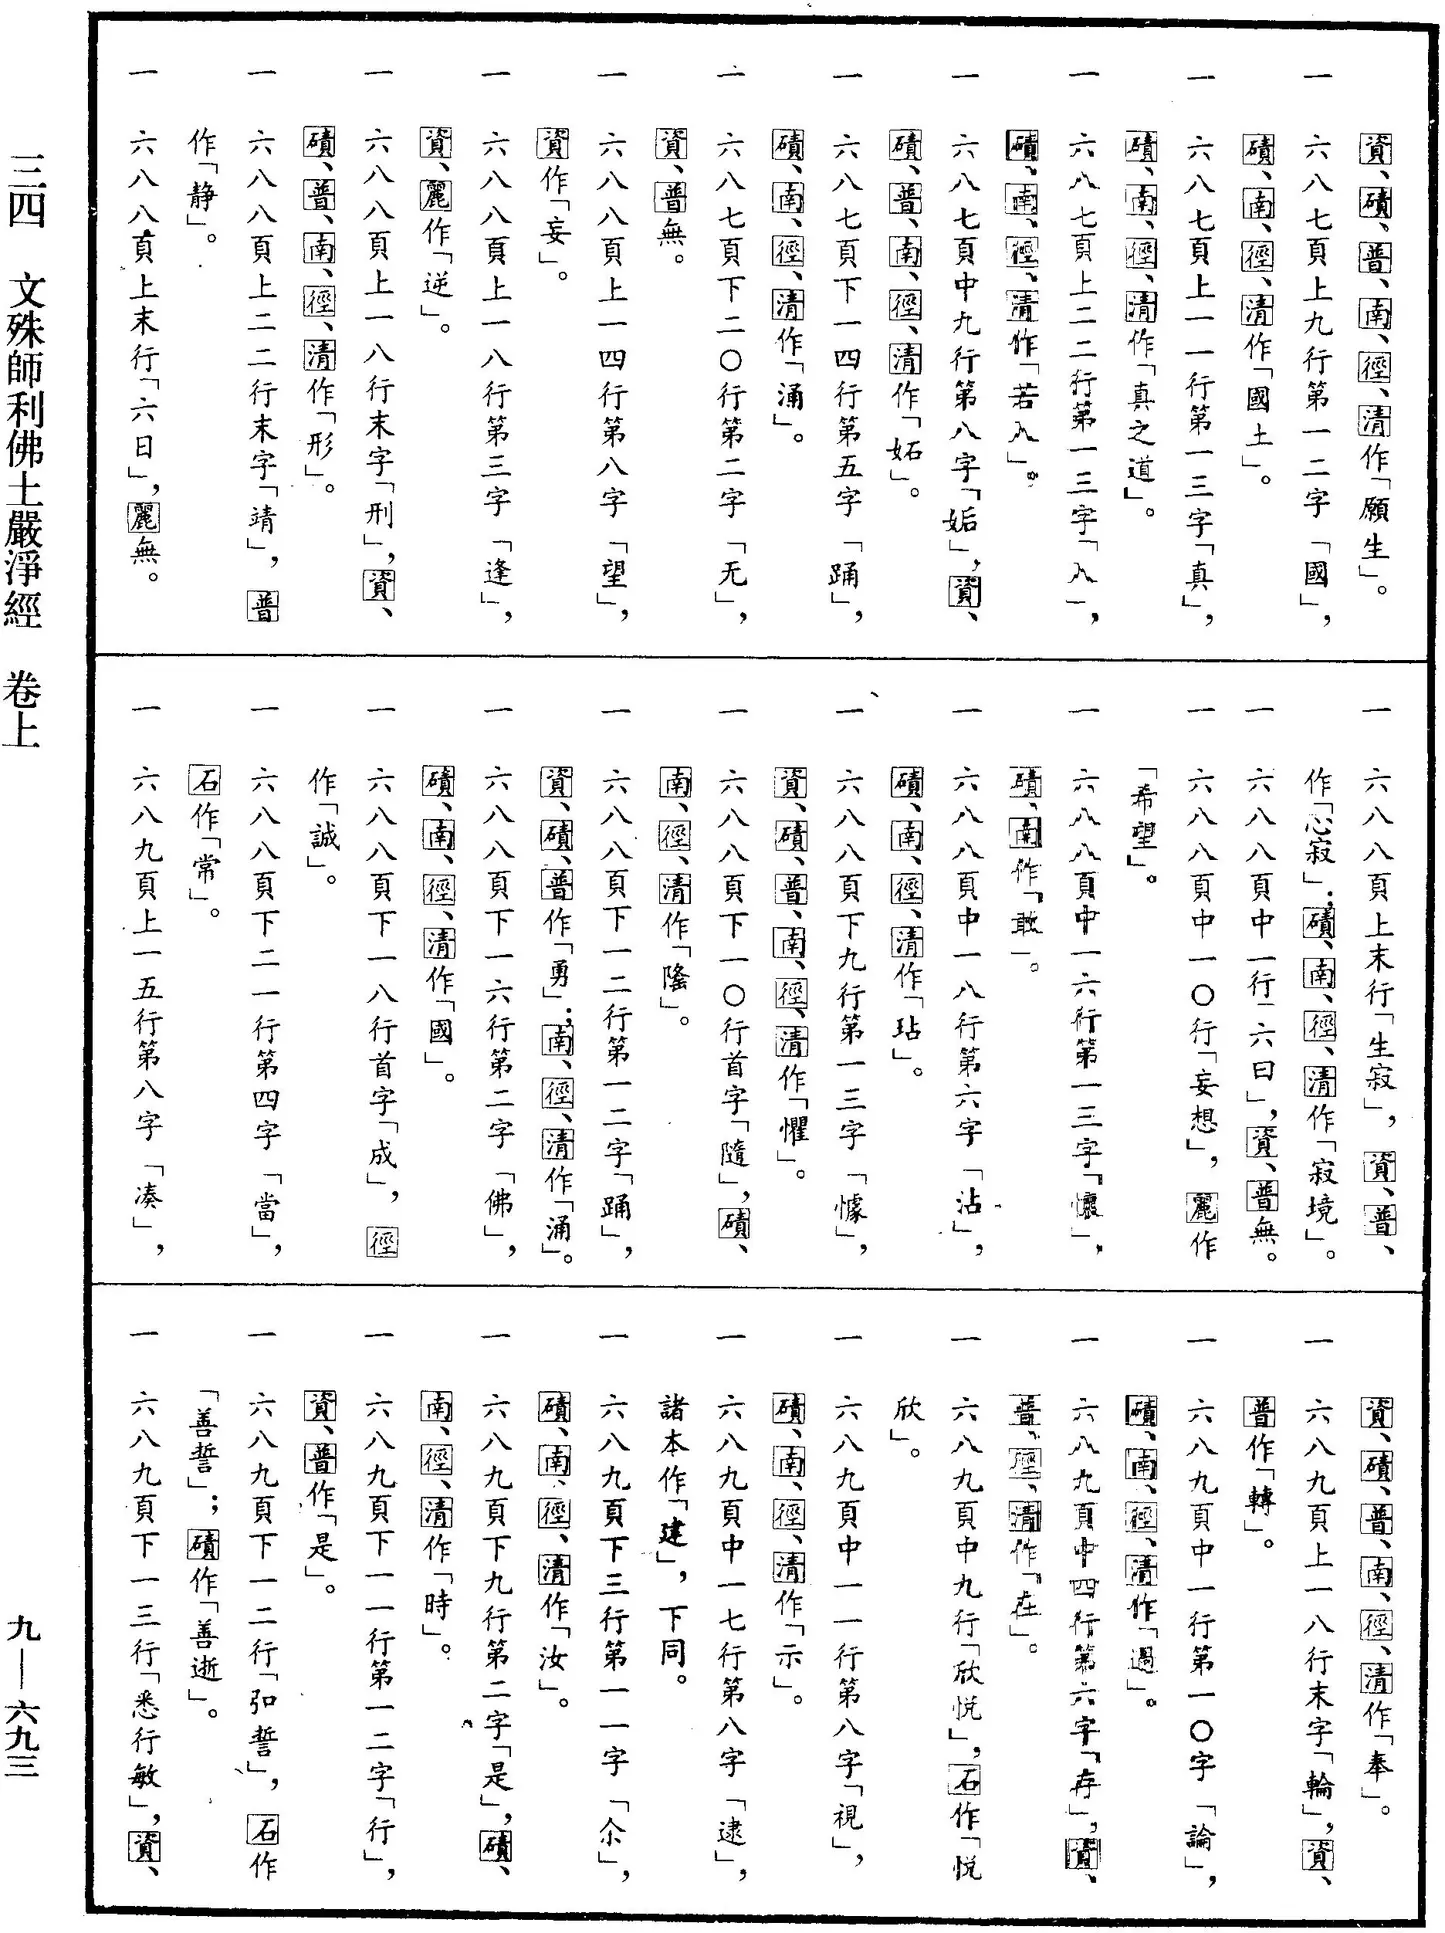 資、磧、普、南、徑、清作「願生」。
一 六八七頁上九行第一二字「國」，
磧、南、徑、清作「國土」。
一 六八七頁上一一行第一三字「真」，
磧、南、徑、清作「真之道」。
一 六八七頁上二二行第一三字「入」，
磧、南、徑、清作「若入」。
一 六八七頁中九行第八字「姤」，資、
磧、普、南、徑、清作「妬」。
一 六八七頁下一四行第五字「踊」，
磧、南、徑、清作「涌」。
一 六八七頁下二〇行第二字「无」，
資、普無。
一 六八八頁上一四行第八字「望」，
資作「妄」。
一 六八八頁上一八行第三字「逢」，
資、麗作「逆」。
一 六八八頁上一八行末字「刑」，資、
磧、普、南、徑、清作「形」。
一 六八八頁上二二行末字「靖」，普
作「静」。
一 六八八頁上末行「六日」，麗無。
一 六八八頁上末行「生寂」，資、普、
作「心寂」；磧、南、徑、清作「寂境」。
一 六八八頁中一行「六曰」，資、普無。
一 六八八頁中一〇行「妄想」，麗作
「希望」。
一 六八八頁中一六行第一三字「懷」，
磧、南作「敢」。
一 六八八頁中一八行第六字「沾」，
磧、南、徑、清作「玷」。
一 六八八頁下九行第一三字「懅」，
資、磧、普、南、徑、清作「懼」。
一 六八八頁下一〇行首字「隨」，磧、
南、徑、清作「隆」。
一 六八八頁下一二行第一二字「踊」，
資、磧、普作「勇」；南、徑、清作「涌」。
一 六八八頁下一六行第二字「佛」，
磧、南、徑、清作「國」。
一 六八八頁下一八行首字「成」，徑
作「誠」。
一 六八八頁下二一行第四字「當」，
石作「常」。
一 六八九頁上一五行第八字「凑」，
資、磧、普、南、徑、清作「奉」。
一 六八九頁上一八行末字「輪」，資、
普作「轉」。
一 六八九頁中一行第一〇字「論」，
磧、南、徑、清作「過」。
一 六八九頁中四行第六字「存」，資、
普、徑、清作「在」。
一 六八九頁中九行「欣悦」，石作「悦
欣」。
一 六八九頁中一一行第八字「視」，
磧、南、徑、清作「示」。
一 六八九頁中一七行第八字「逮」，
諸本作「建」，下同。
一 六八九頁下三行第一一字「尒」，
磧、南、徑、清作「汝」。
一 六八九頁下九行第二字「是」，磧、
南、徑、清作「時」。
一 六八九頁下一一行第一二字「行」，
資、普作「是」。
一 六八九頁下一二行「弘誓」，石作
「善誓」；磧作「善逝」。
一 六八九頁下一三行「悉行敏」，資、
三四 文殊師利佛土嚴淨經 卷上
九—六九三